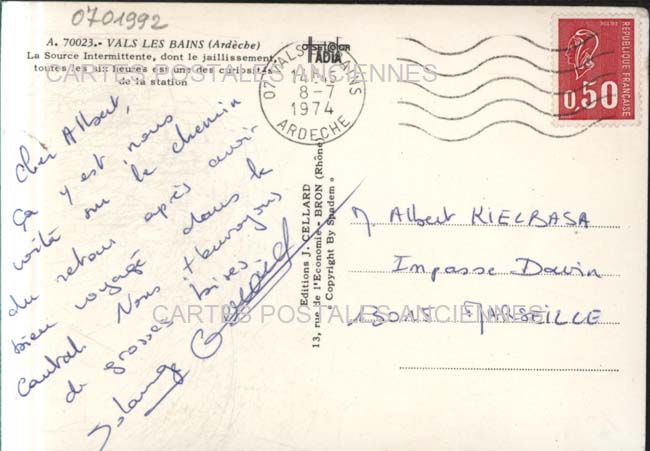 0701992
A. 70023.- VALS LES BAINS (Ardèche)
La Source Intermittente, dont le jaillissement,
toutes les six heures est une des curiosités
de la station
CARTES POSTALES ANCIENNES
07 VALS BAINS
8-7
1974
ARDECHE
0,50
REPUBLIQUE FRANÇAISE
Cher Albert,
ça y est nous
voilà sur le chemin
du retour après avoir
bien voyagé dans le
Cantal. Nous t'envoyons
de grosses bises.
Solange
Editions J. CELLARD
13, rue de l'Economie - BRON (Rhône)
« Copyright By Spadem »
M Albert KIELBASA
Impasse
MARSEILLE
CARTES POSTALES ANCIENNES